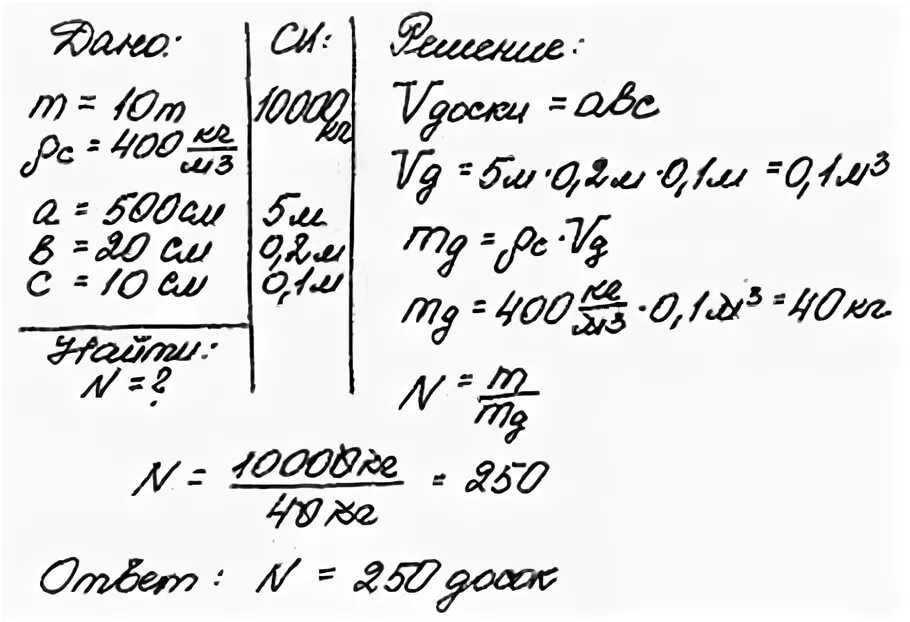 Дано:
m = 10т
ρс = 400 кг/м3
a = 500 см
в = 20 см
c = 10 см
Найти:
N = ?
СИ:
10000 кг
5м
0,2м
0,1м
Решение:
Vдоски = авс
Vд = 5м·0,2м·0,1м = 0,1м³
mд = ρс·Vд
mд = 400 кг/м3 · 0,1м³ = 40 кг
N = m/mд
N = 10000кг/40 кг = 250
Ответ: N = 250 досок